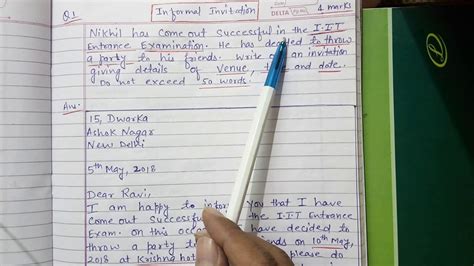 Informal Invitation
DELTA Pg No.
Q1 4 marks
Nikhil has come out successful in the I.I.T
Entrance Examination. He has decided to throw
a party to his friends. Write an invitation
giving details of Venue, and date.
Do not exceed 50 words.
Ans:
15, Dwarka
Ashok Nagar
New Delhi
5th May, 2018
Dear Ravi,
I am happy to inform you that I have
Come out Successful the I.I.T Entrance
Exam. On this have decided to
throw a party ends on 10th May,
2018 at Krishna hot please do